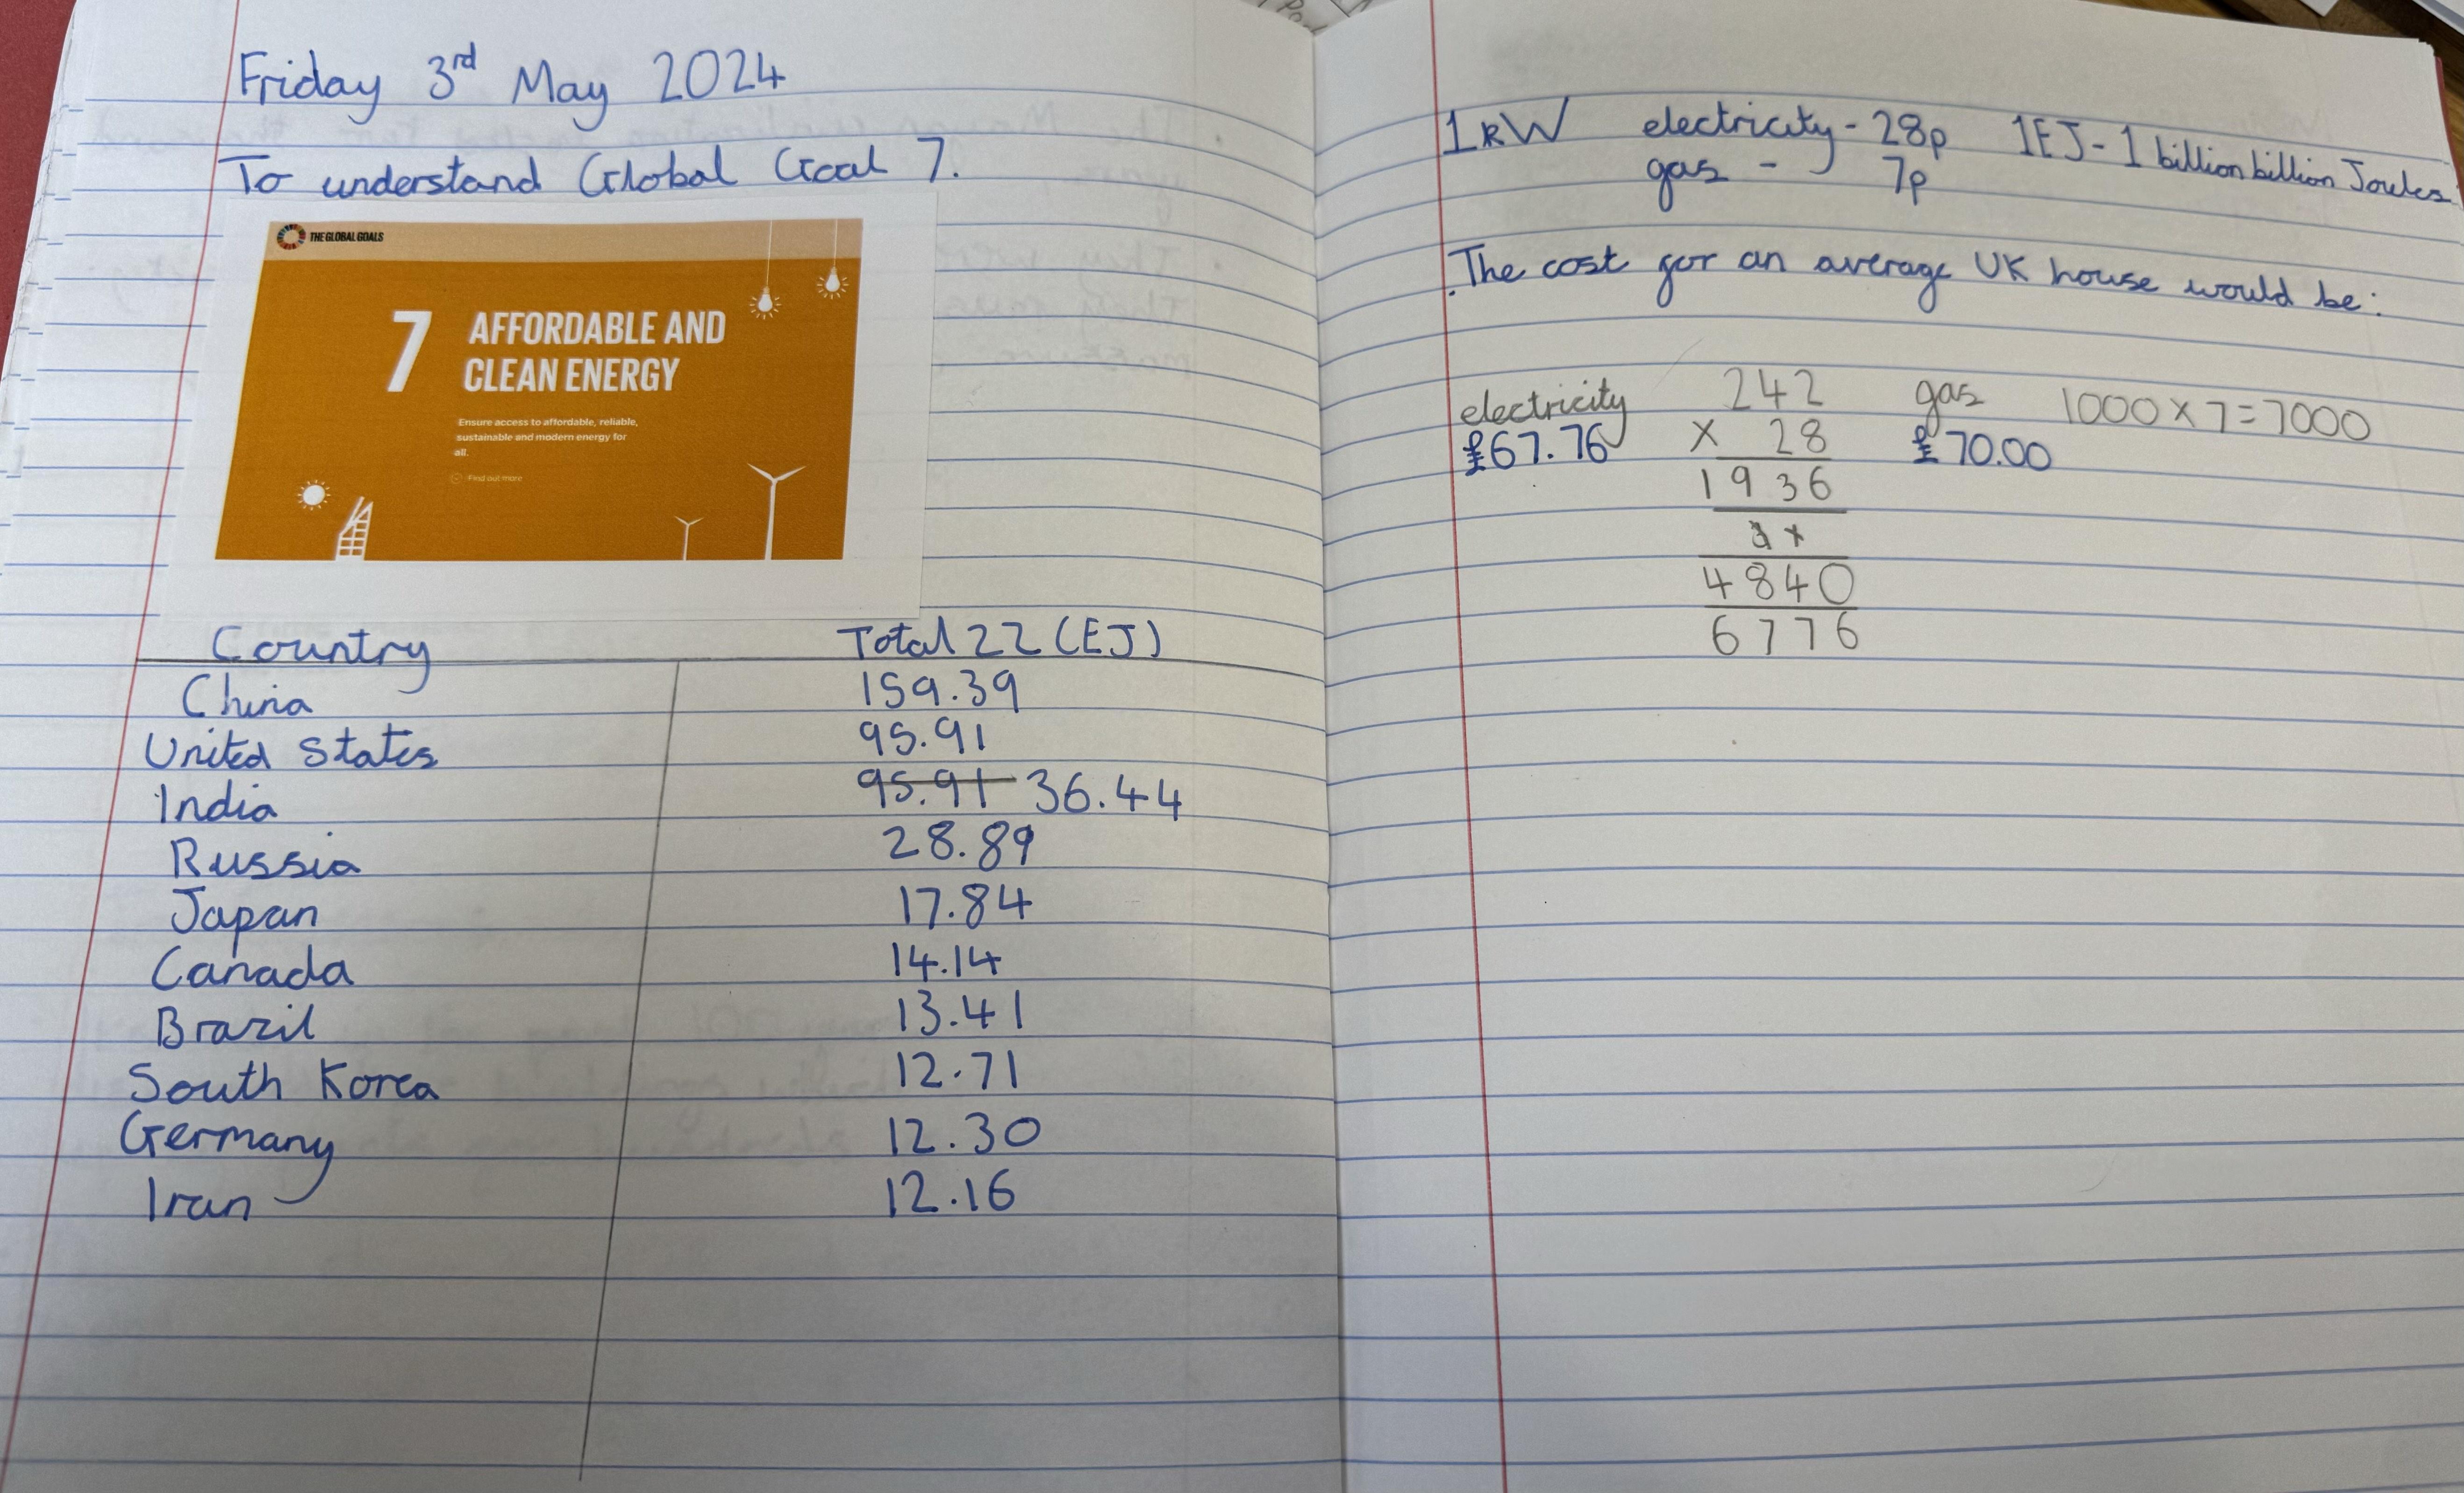 Friday 3rd May 2024
To understand Global Goal 7.
THE GLOBAL GOALS
7 AFFORDABLE AND
CLEAN ENERGY
Ensure access to affordable, reliable,
sustainable and modern energy for
all.
Find out more
Country Total 22 (EJ)
China 159.39
United States 95.91
India 95.91 36.44
Russia 28.89
Japan 17.84
Canada 14.14
Brazil 13.41
South Korea 12.71
Germany 12.30
Iran 12.16
1kW electricity - 28p 1EJ - 1 billion billion Joules
gas - 7p
The cost for an average UK house would be:
electricity 242 gas 1000 x 7 = 7000
£67.76 x 28 £70.00
1936
4840
6776